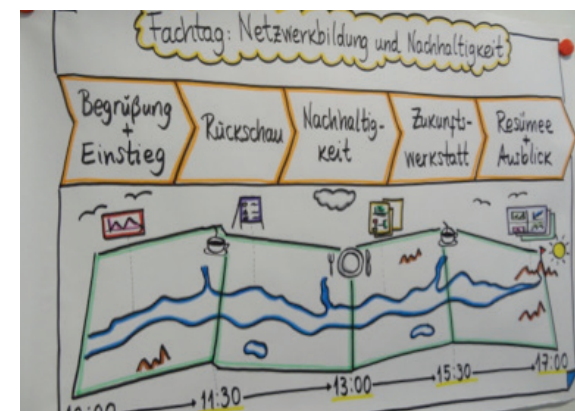 Fachtag: Netzwerkbildung und Nachhaltigkeit
Begrüßung
+
Einstieg
Rückschau
Nachhaltig-
keit
Zukunfts-
werkstatt
Resümee
+
Ausblick
11:30
13:00
15:30
17:00